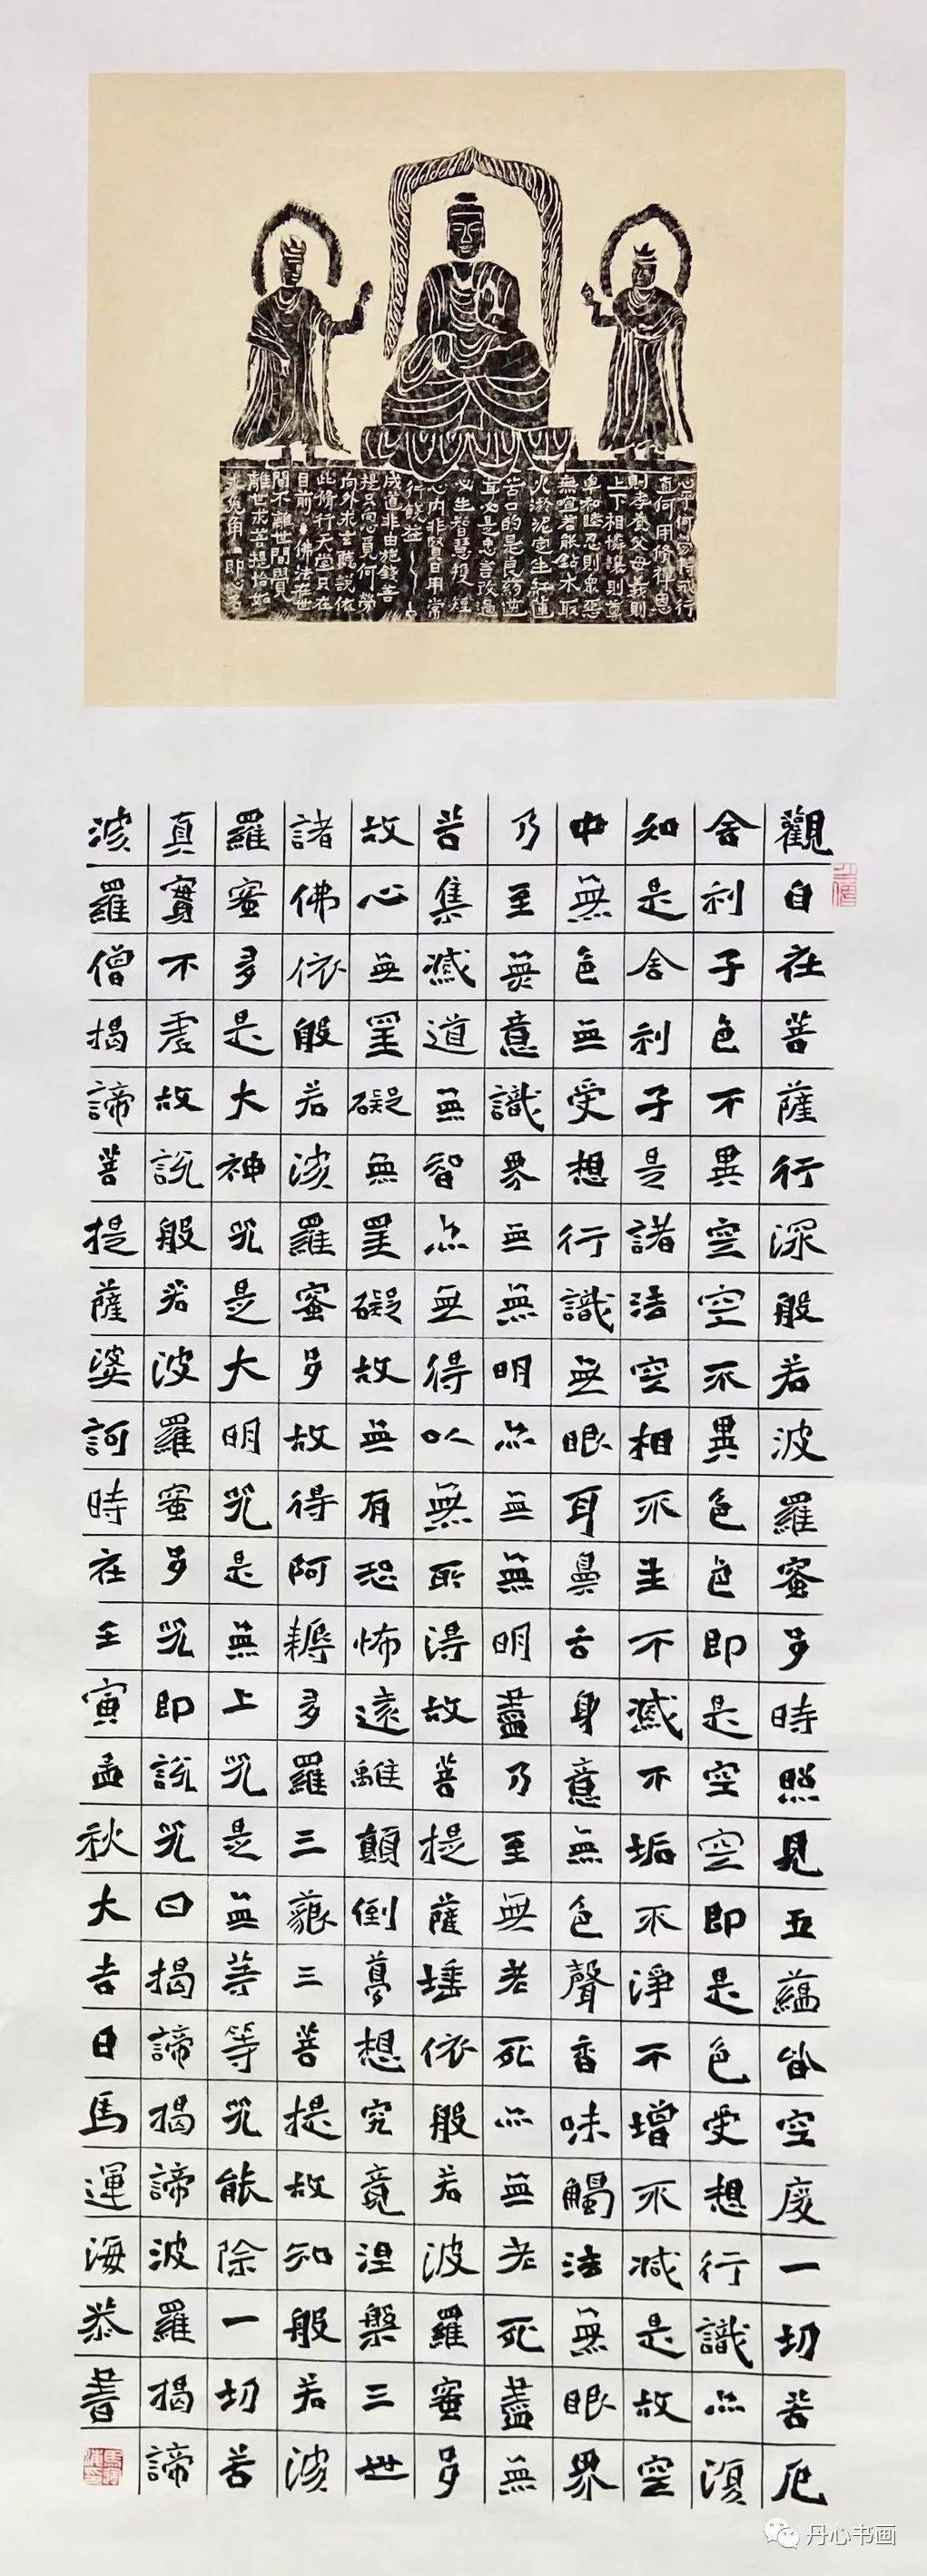 心平何勞持戒行
直何用修禪恩
則孝養父母義則
上下相憐讓則尊
卑和睦忍則眾惡
無喧若能鉆木取
火淤泥定生紅蓮
苦口的是良藥逆
耳必是忠言改過
必生智慧護短
心內非賢日用常
行饒益
成道非由施錢善
提只向心覓何勞
向外求玄聽說依
此修行天堂只在
目前佛法在世
間不離世間覺
離世求菩提恰如
求兔角即
觀自在菩薩行深般若波羅蜜多時照見五蘊皆空度一切苦厄
舍利子色不異空空不異色色即是空空即是色受想行識亦復
如是舍利子是諸法空相不生不滅不垢不淨不增不減是故空
中無色無受想行識無眼耳鼻舌身意無色聲香味觸法無眼界
乃至無意識界無無明亦無無明盡乃至無老死亦無老死盡無
苦集滅道無智亦無得以無所得故菩提薩埵依般若波羅蜜多
故心無罣礙無罣礙故無有恐怖遠離顛倒夢想究竟涅槃三世
諸佛依般若波羅蜜多故得阿耨多羅三藐三菩提故知般若波
羅蜜多是大神咒是大明咒是無上咒是無等等咒能除一切苦
真實不虛故說般若波羅蜜多咒即說咒曰揭諦揭諦波羅揭諦
波羅僧揭諦菩提薩婆訶時在壬寅孟秋大吉日馬運海恭書
丹心书画